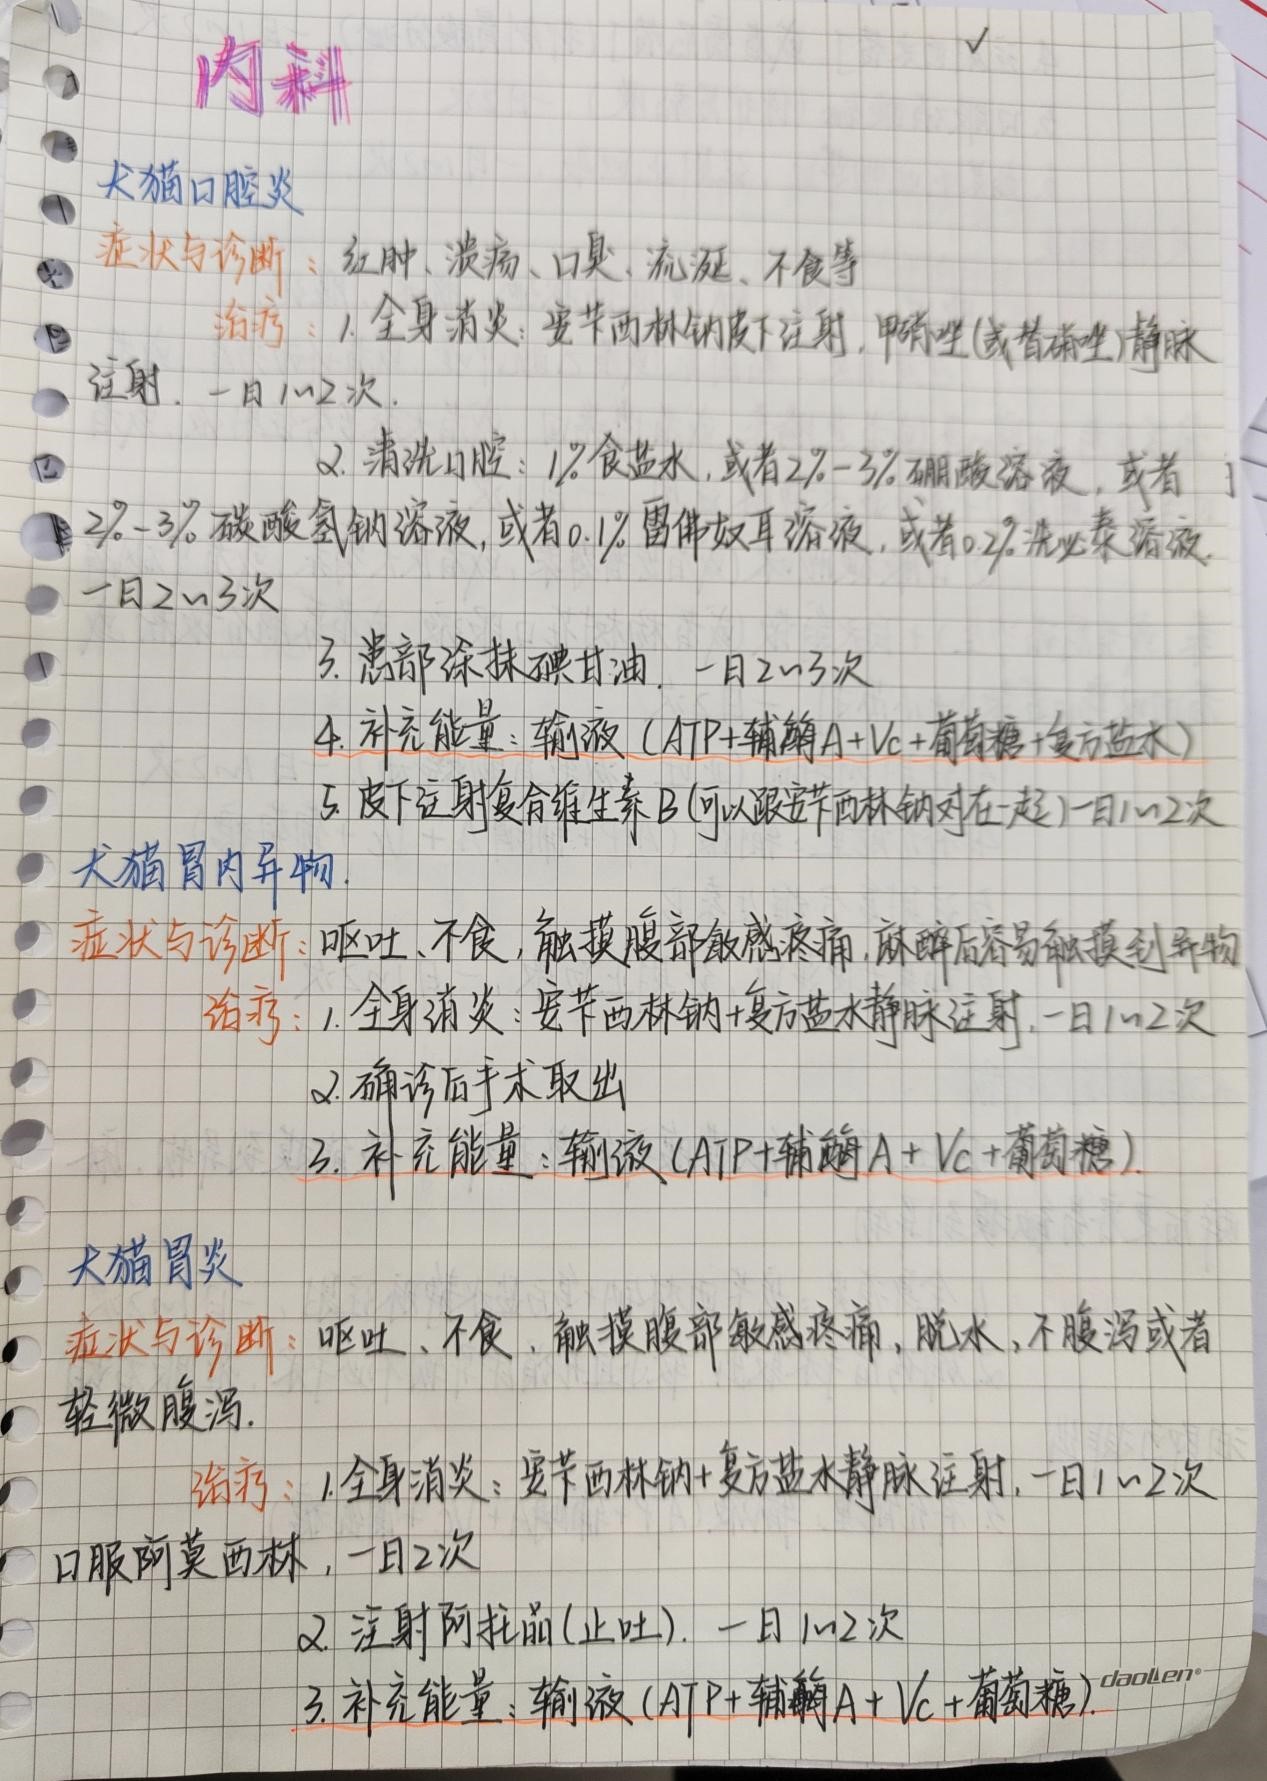 内科
犬猫口腔炎
症状与诊断：红肿、溃疡、口臭、流涎、不食等
治疗：1. 全身消炎：安苄西林钠皮下注射，甲硝唑(或替硝唑)静脉
注射．一日1~2次．
2. 清洗口腔：1%食盐水，或者2%-3%硼酸溶液，或者
2%-3%碳酸氢钠溶液，或者0.1%雷佛奴耳溶液，或者0.2%洗必泰溶液．
一日2~3次
3. 患部涂抹碘甘油．一日2~3次
4. 补充能量：输液（ATP+辅酶A+Vc+葡萄糖+复方盐水）
5. 皮下注射复合维生素B(可以跟安苄西林钠对在一起)一日1~2次
犬猫胃内异物．
症状与诊断：呕吐、不食，触摸腹部敏感疼痛，麻醉后容易触摸到异物
治疗：1. 全身消炎：安苄西林钠+复方盐水静脉注射，一日1~2次
2. 确诊后手术取出
3. 补充能量：输液（ATP+辅酶A+Vc+葡萄糖）．
犬猫胃炎
症状与诊断：呕吐、不食，触摸腹部敏感疼痛，脱水，不腹泻或者
轻微腹泻．
治疗：1. 全身消炎：安苄西林钠+复方盐水静脉注射，一日1~2次
口服阿莫西林，一日2次
2. 注射阿托品(止吐)．一日1~2次
3. 补充能量：输液（ATP+辅酶A+Vc+葡萄糖）．
daoLen®